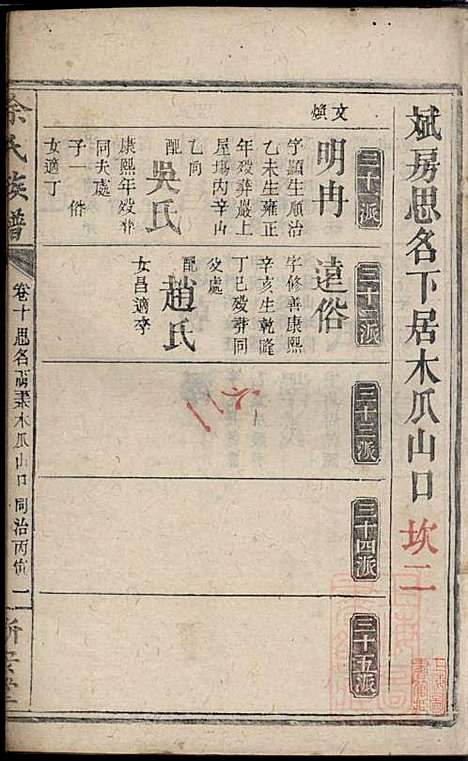 斌房思名下居木爪山口 坎二
三十一派
文煥
明冉
字顯生順治
乙未生雍正
年歿葬嚴上
屋塲内辛山
乙向
配吳氏
康熙年歿葬
同夫處
子一俗
女適丁
三十二派
遠俗
字修善康熙
辛亥生乾隆
丁巳歿葬同
父處
配趙氏
女昌適李
三十三派
三十四派
三十五派
余氏族譜
卷十思名
木爪山口
同治丙寅
新安堂